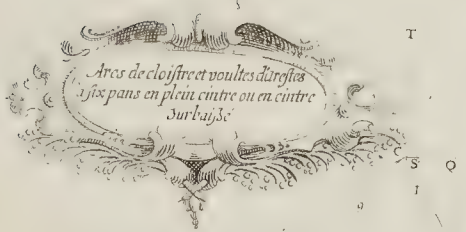 Arcs de cloistre et voultes d'arestes
a six pans en plein cintre ou en cintre
Surbaissé
T
S Q
I